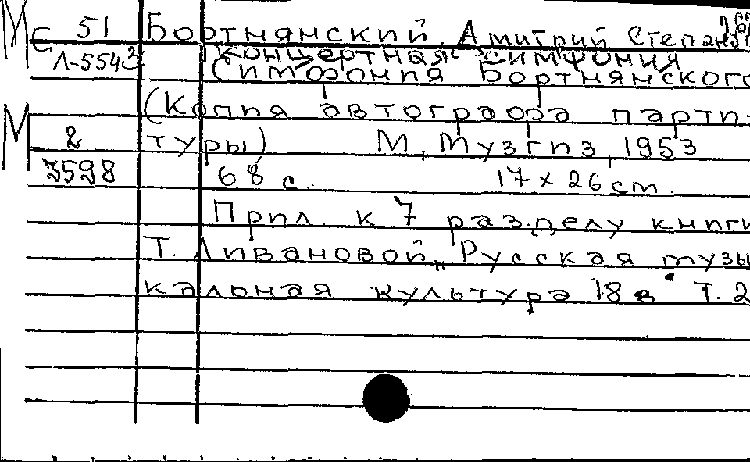 М С 51 Бортнянский, Дмитрий Степан
Л-5543 Концертная симфония
Симфония Бортнянского
(Копия автографа парти-
М 2 туры) М, Музгиз, 1953
3598 68 с. 17 x 26 cm.
Прил. к 7 разделу книги
Т. Ливановой "Русская музы
кальная культура 18 в" Т. 2